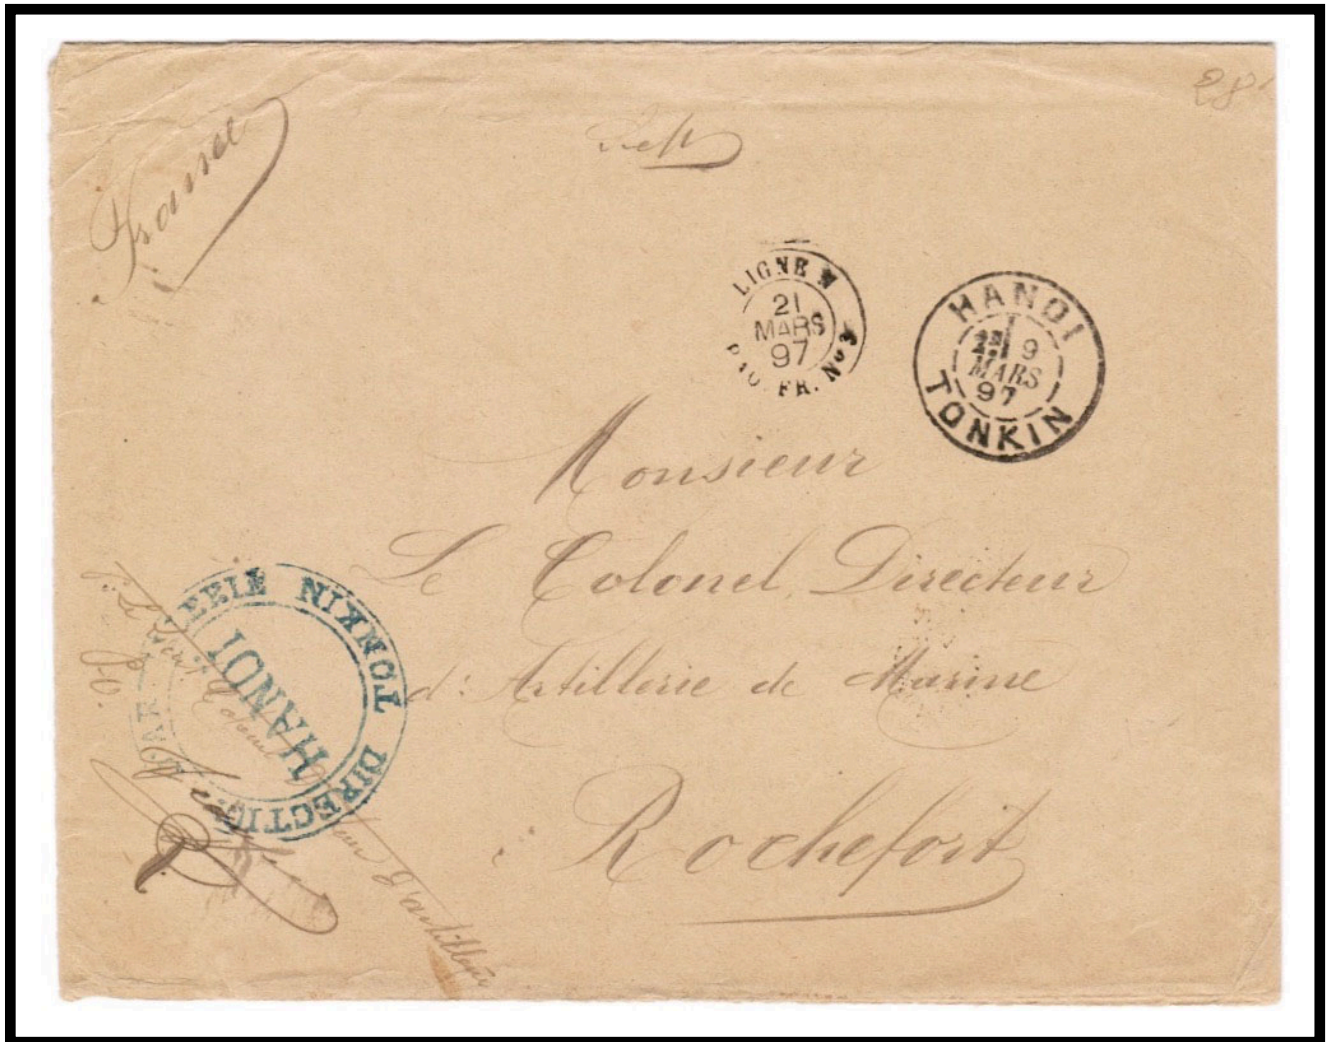 France
LIGNE N
21
MARS
97
PAQ. FR. No 3
HANOI
2E 9
MARS
97
TONKIN
Monsieur
Le Colonel, Directeur
d'Artillerie de Marine
Rochefort
TONKIN DIRECTIO
HANOI
d'artillerie
P.O.